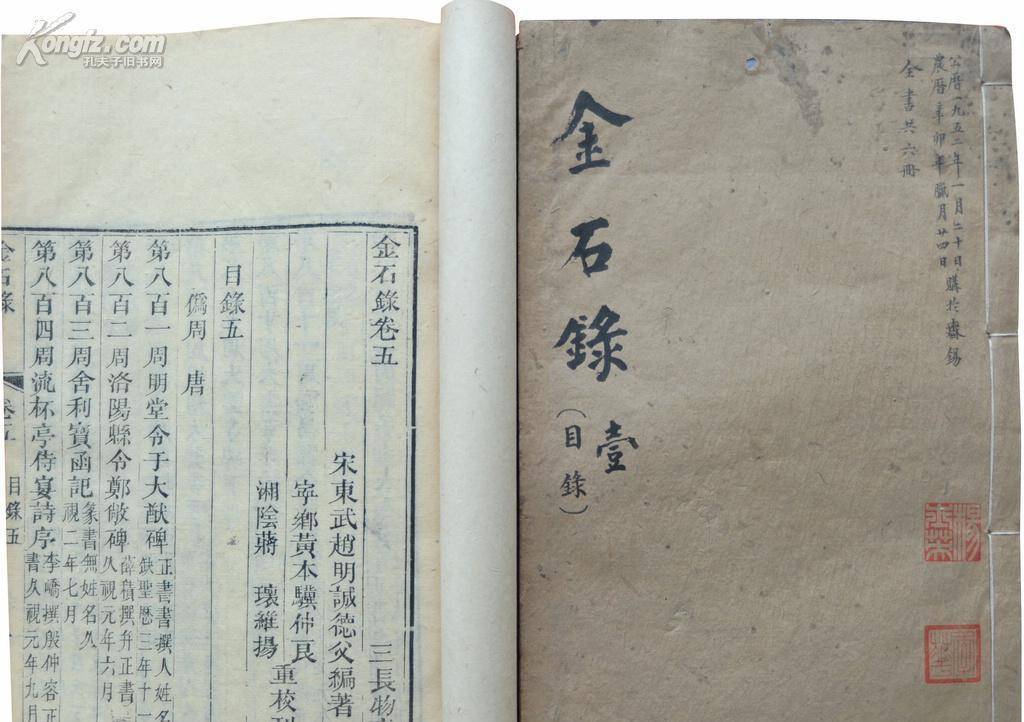 Kongfz.com
孔夫子旧书网
公曆一九五二年一月二十日購於無錫
農曆辛卯年臘月廿四日
全書共六冊
金石錄壹
（目錄）
金石錄卷五
三長物
宋東武趙明誠德父編著
寧鄉黃本驥仲良
湘陰蔣瓌維揚
重校刊
目錄五
僞周 唐
第八百一周明堂令于大猷碑正書書撰人姓名缺聖曆三年十一
第八百二周洛陽縣令鄭敞碑薛稷撰并正書久視元年六月
第八百三周舍利寶函記篆書無姓名久視二年七月
第八百四周流杯亭侍宴詩序李嶠撰殷仲容正書久視元年九月
金石錄
卷五
目錄五